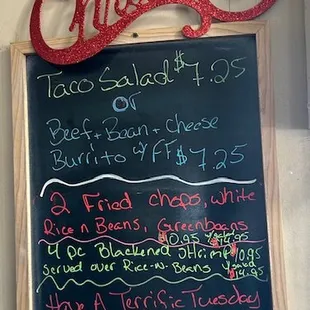 Taco Salad $7.25
or
Beef + Bean + Cheese
Burrito w/ FF $7.25
2 Fried chops, white
Rice n Beans, Greenbeans
$10.95 w/salad $14.95
4 pc Blackened Shrimp $10.95
Served over Rice-n-Beans w/salad $14.95
Have A Terrific Tuesday